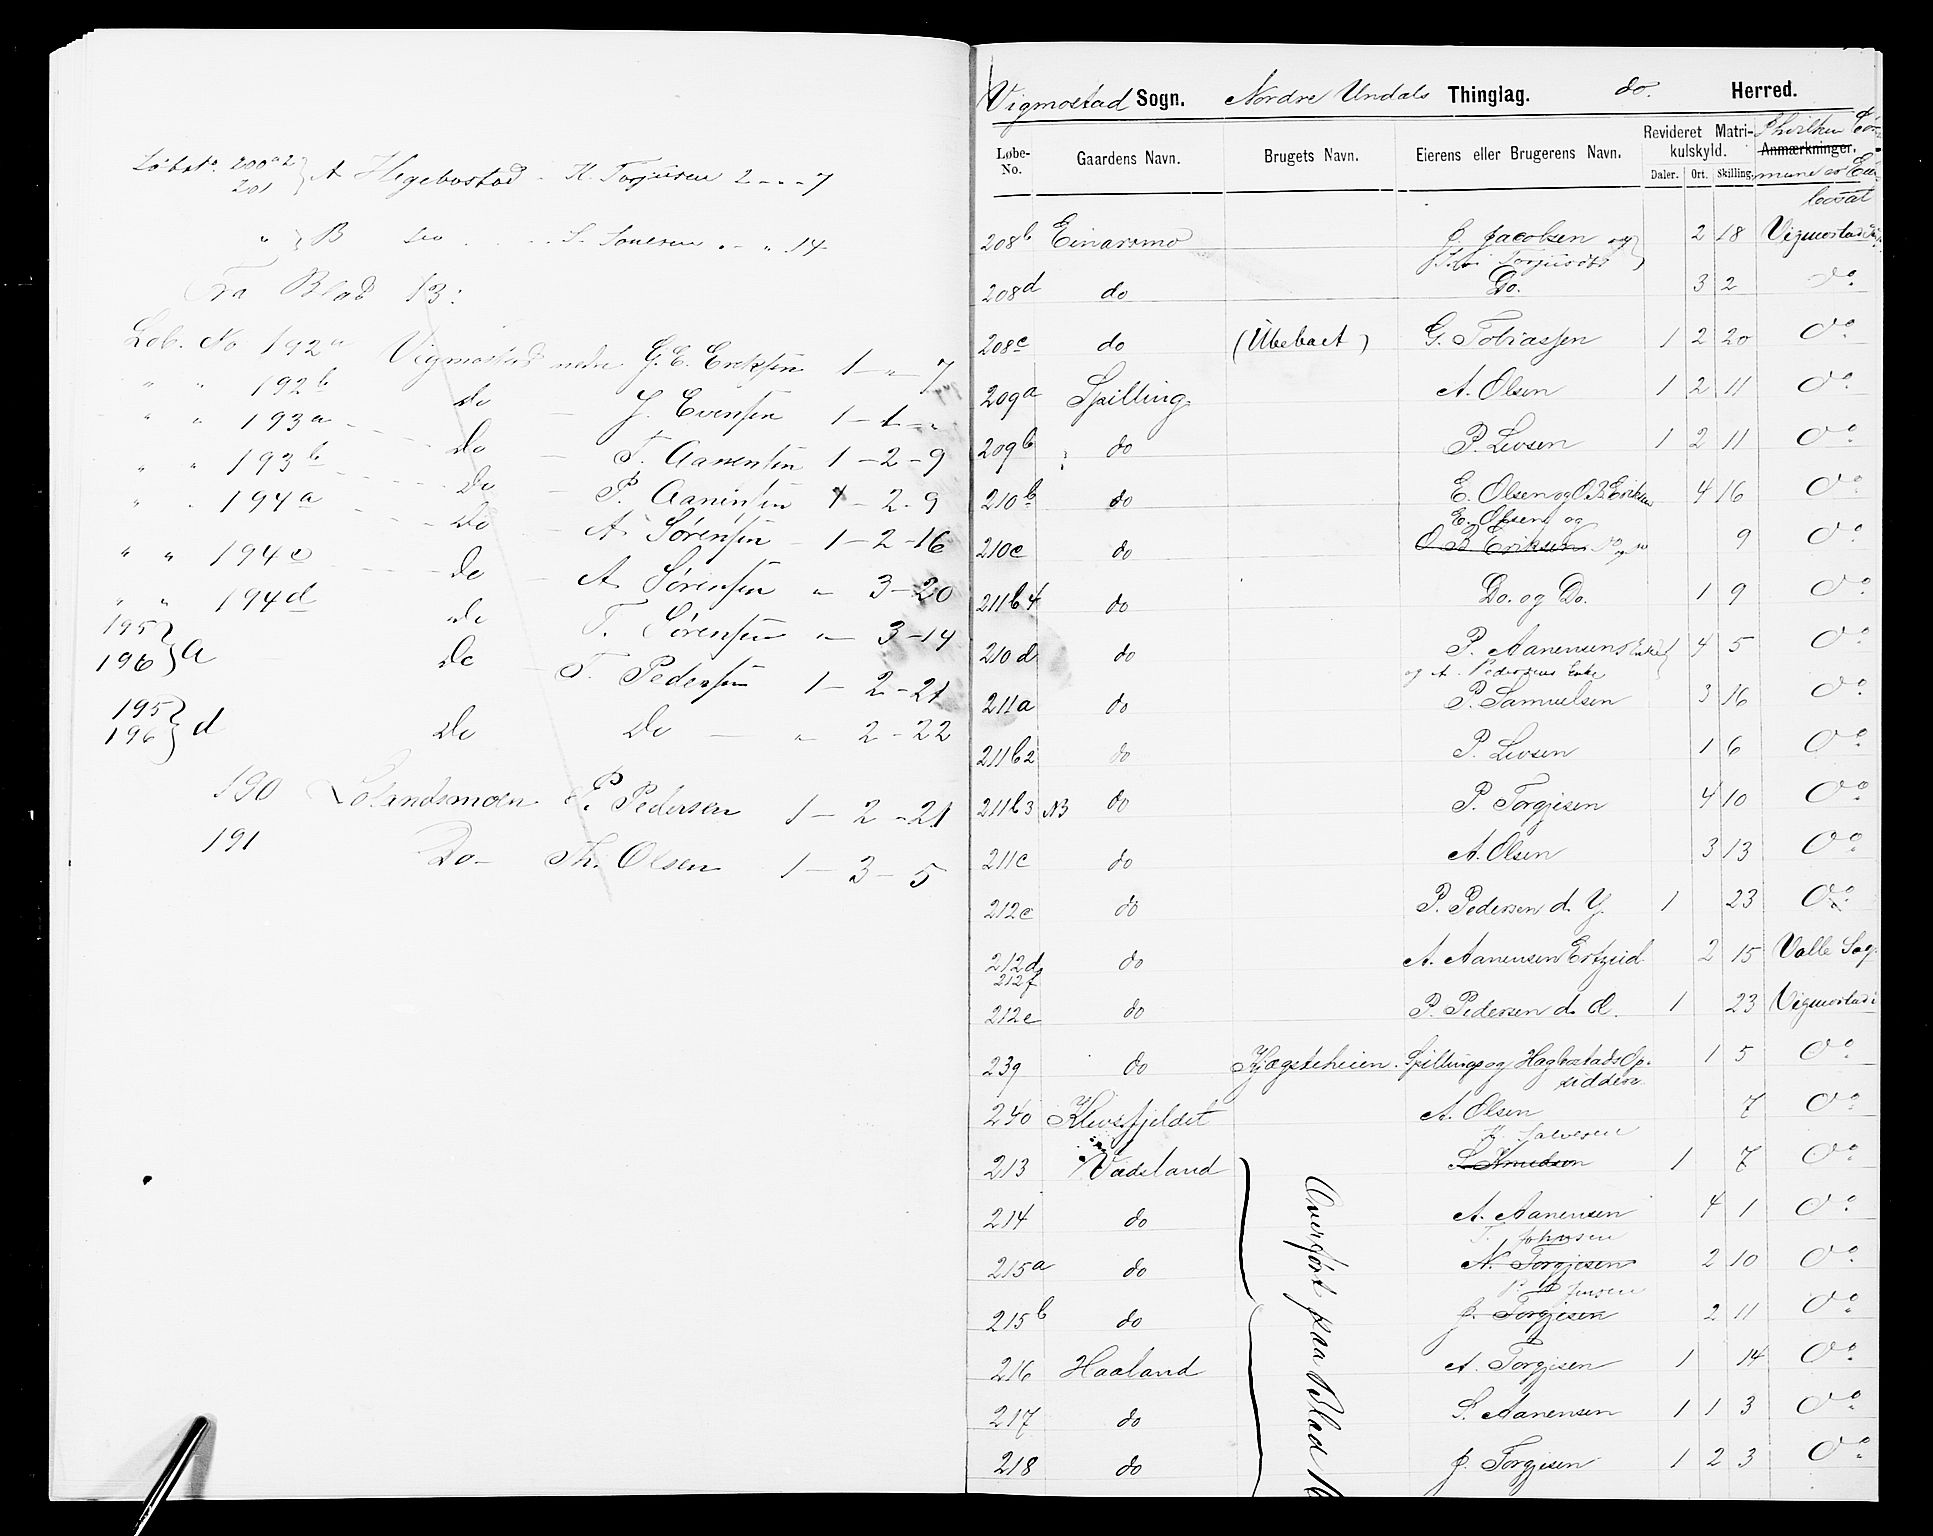 Løbeto. 200a2 } A Hegebostad - K. Torjusen 2 - " - 7
201
" } B do . . . . S. Salvesen " - " 14
Fra Blad 13:
Løb. No 192a Vigmostad nedre G. E. Eriksen 1 - " - 7
" " 192b do - J. Evensen 1 - 1 - "
" " 193a - - - do - T. Aanensen 1 - 2 - 9
" " 193b - - - do - P. Aanensen 1 - 2 - 9
" " 194a - - - do - A Sørensen - 1 - 2 - 16
" " 194c - - - do - A. Sørensen " 3 - 20
" " 194d do T. Sørensen " 3 - 14
195 } a
196 do - T. Pedersen 1 - 2 - 21
195 } d
196 do do - " 2 - 22
190 Lølandsmoen P. Pedersen 1 - 2 - 21
191 Do - Th. Olsen 1 - 3 - 5
Vigmostad Sogn. Nordre Undals Thinglag. do. Herred.
Løbe-No. Gaardens Navn. Brugets Navn. Eierens eller Brugerens Navn. Revideret Matrikulskyld. Daler. Ort. Skilling. Anmærkninger.
I hvilken
bosat
208b Einarsmo J. Jacobsen og 2 18 Vigmostad
Torjusdtr
208d do Do. 3 2 do
208c do (Ubeboet) G. Tobiassen 1 2 20 do
209a Spilling A. Olsen 1 2 11 do
209b do P. Levsen 1 2 11 do
210b do E. Olsen og O. B. Eriksen 4 16 do
E. Olsen og
210c do O B Eriksen 9 do
211b4 do Do. og Do. 1 9 do
210d do P. Aanensens Enke } 4 5 do
og A. Pedersens Enke
211a do P. Samuelsen 3 16 do
211b2 do P. Levsen 1 6 do
211b3 NB do P. Torgjesen 4 10 do
211c do A. Olsen 3 13 do
212c do P. Pedersen d. Y. 1 23 do
212d do A. Aanensen Ertzeid 2 15 Valle Sog.
212f
212e do P. Pedersen d. Æ. 1 23 Vigmostad
239 do Kjøgsteheien. Spillings og Hagbostads Op- 1 5 do
sidder
240 Klevsfjeldet A. Olsen 7 do
K. Salvesen
213 Vadsland S. Knudsen 1 7 do
214 do A. Aanensen 4 1 do
T. Johnsen
215a do N. Torgjesen 2 10 do
Jensen
215b do J. Torgjesen 2 11 do
216 Haaland A. Torgjesen 1 14 do
217 do S. Aanensen 1 1 3 do
218 do J. Torgjesen 1 2 3 do
Overført paa Blad 16